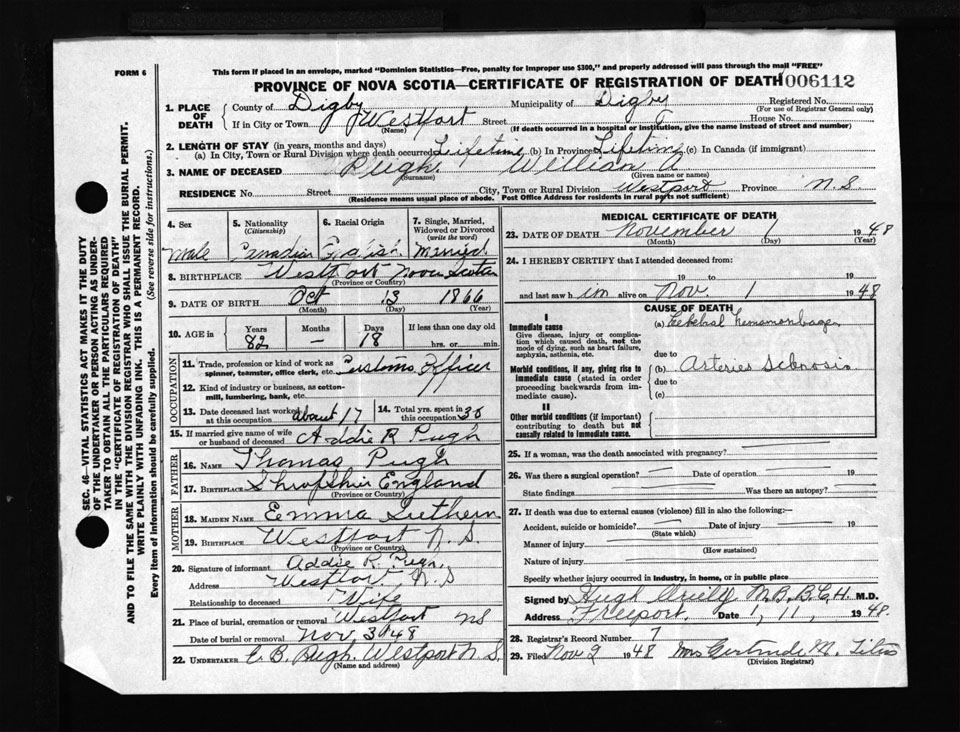 FORM 6
This form if placed in an envelope, marked "Dominion Statistics—Free, penalty for improper use $300," and properly addressed will pass through the mail "FREE"
PROVINCE OF NOVA SCOTIA—CERTIFICATE OF REGISTRATION OF DEATH 006112
1. PLACE OF DEATH County of Digby Municipality of Digby Registered No.
(For use of Registrar General only)
If in City or Town Westport Street House No.
(Name) (If death occurred in a hospital or institution, give the name instead of street and number)
2. LENGTH OF STAY (in years, months and days)
(a) In City, Town or Rural Division where death occurred Lifetime (b) In Province Lifetime (c) In Canada (if immigrant)
3. NAME OF DECEASED Pugh. William A.
(Surname) (Given name or names)
RESIDENCE No. Street City, Town or Rural Division Westport Province N.S.
(Residence means usual place of abode. Post Office Address for residents in rural parts not sufficient)
SEC. 46—VITAL STATISTICS ACT MAKES IT THE DUTY
OF THE UNDERTAKER OR PERSON ACTING AS UNDER-
TAKER TO OBTAIN ALL THE PARTICULARS REQUIRED
IN THE "CERTIFICATE OF REGISTRATION OF DEATH"
AND TO FILE THE SAME WITH THE DIVISION REGISTRAR WHO SHALL ISSUE THE BURIAL PERMIT.
WRITE PLAINLY WITH UNFADING INK. THIS IS A PERMANENT RECORD.
Every item of information should be carefully supplied. (See reverse side for instructions.)
4. Sex 5. Nationality (Citizenship) 6. Racial Origin 7. Single, Married, Widowed or Divorced (write the word)
Male Canadian English Married
8. BIRTHPLACE Westport Nova Scotia
(Province or Country)
9. DATE OF BIRTH Oct 13 1866
(Month) (Day) (Year)
10. AGE in Years Months Days If less than one day old
82 — 18 hrs. or min.
OCCUPATION
11. Trade, profession or kind of work as spinner, teamster, office clerk, etc. Customs Officer
12. Kind of industry or business, as cotton-mill, lumbering, bank, etc.
13. Date deceased last worked at this occupation about 17 14. Total yrs. spent in 30 this occupation
15. If married give name of wife or husband of deceased Addie R Pugh
FATHER
16. NAME Thomas Pugh
17. BIRTHPLACE Shropshire England
(Province or Country)
MOTHER
18. MAIDEN NAME Emma
19. BIRTHPLACE Westport N.S.
(Province or Country)
20. Signature of informant Addie R. Pugh
Address Westport N.S
Relationship to deceased Wife
21. Place of burial, cremation or removal Westport NS
Date of burial or removal Nov 3 1948
22. UNDERTAKER C. B. Pugh. Westport N.S.
(Name and address)
MEDICAL CERTIFICATE OF DEATH
23. DATE OF DEATH November 1 1948
(Month) (Day) (Year)
24. I HEREBY CERTIFY that I attended deceased from:
19 to 19
and last saw him alive on Nov. 1 1948
CAUSE OF DEATH
I
Immediate cause (a)
Give disease, injury or complication which caused death, not the mode of dying, such as heart failure, asphyxia, asthenia, etc.
due to
Morbid conditions, if any, giving rise to immediate cause (stated in order proceeding backwards from immediate). (b) Arteries
due to
(c)
II
Other morbid conditions (if important) contributing to death but not causally related to immediate cause.
25. If a woman, was the death associated with pregnancy?
26. Was there a surgical operation? Date of operation 19
State findings Was there an autopsy?
27. If death was due to external causes (violence) fill in also the following:—
Accident, suicide or homicide? Date of injury 19
(State which)
Manner of injury
(How sustained)
Nature of injury
Specify whether injury occurred in industry, in home, or in public place
Signed by Hugh M.B.B.C.H. M.D.
Address Freeport. Date 1, 11, 1948.
28. Registrar's Record Number 7
29. Filed Nov 2 1948 Mrs Gertrude M.
(Division Registrar)